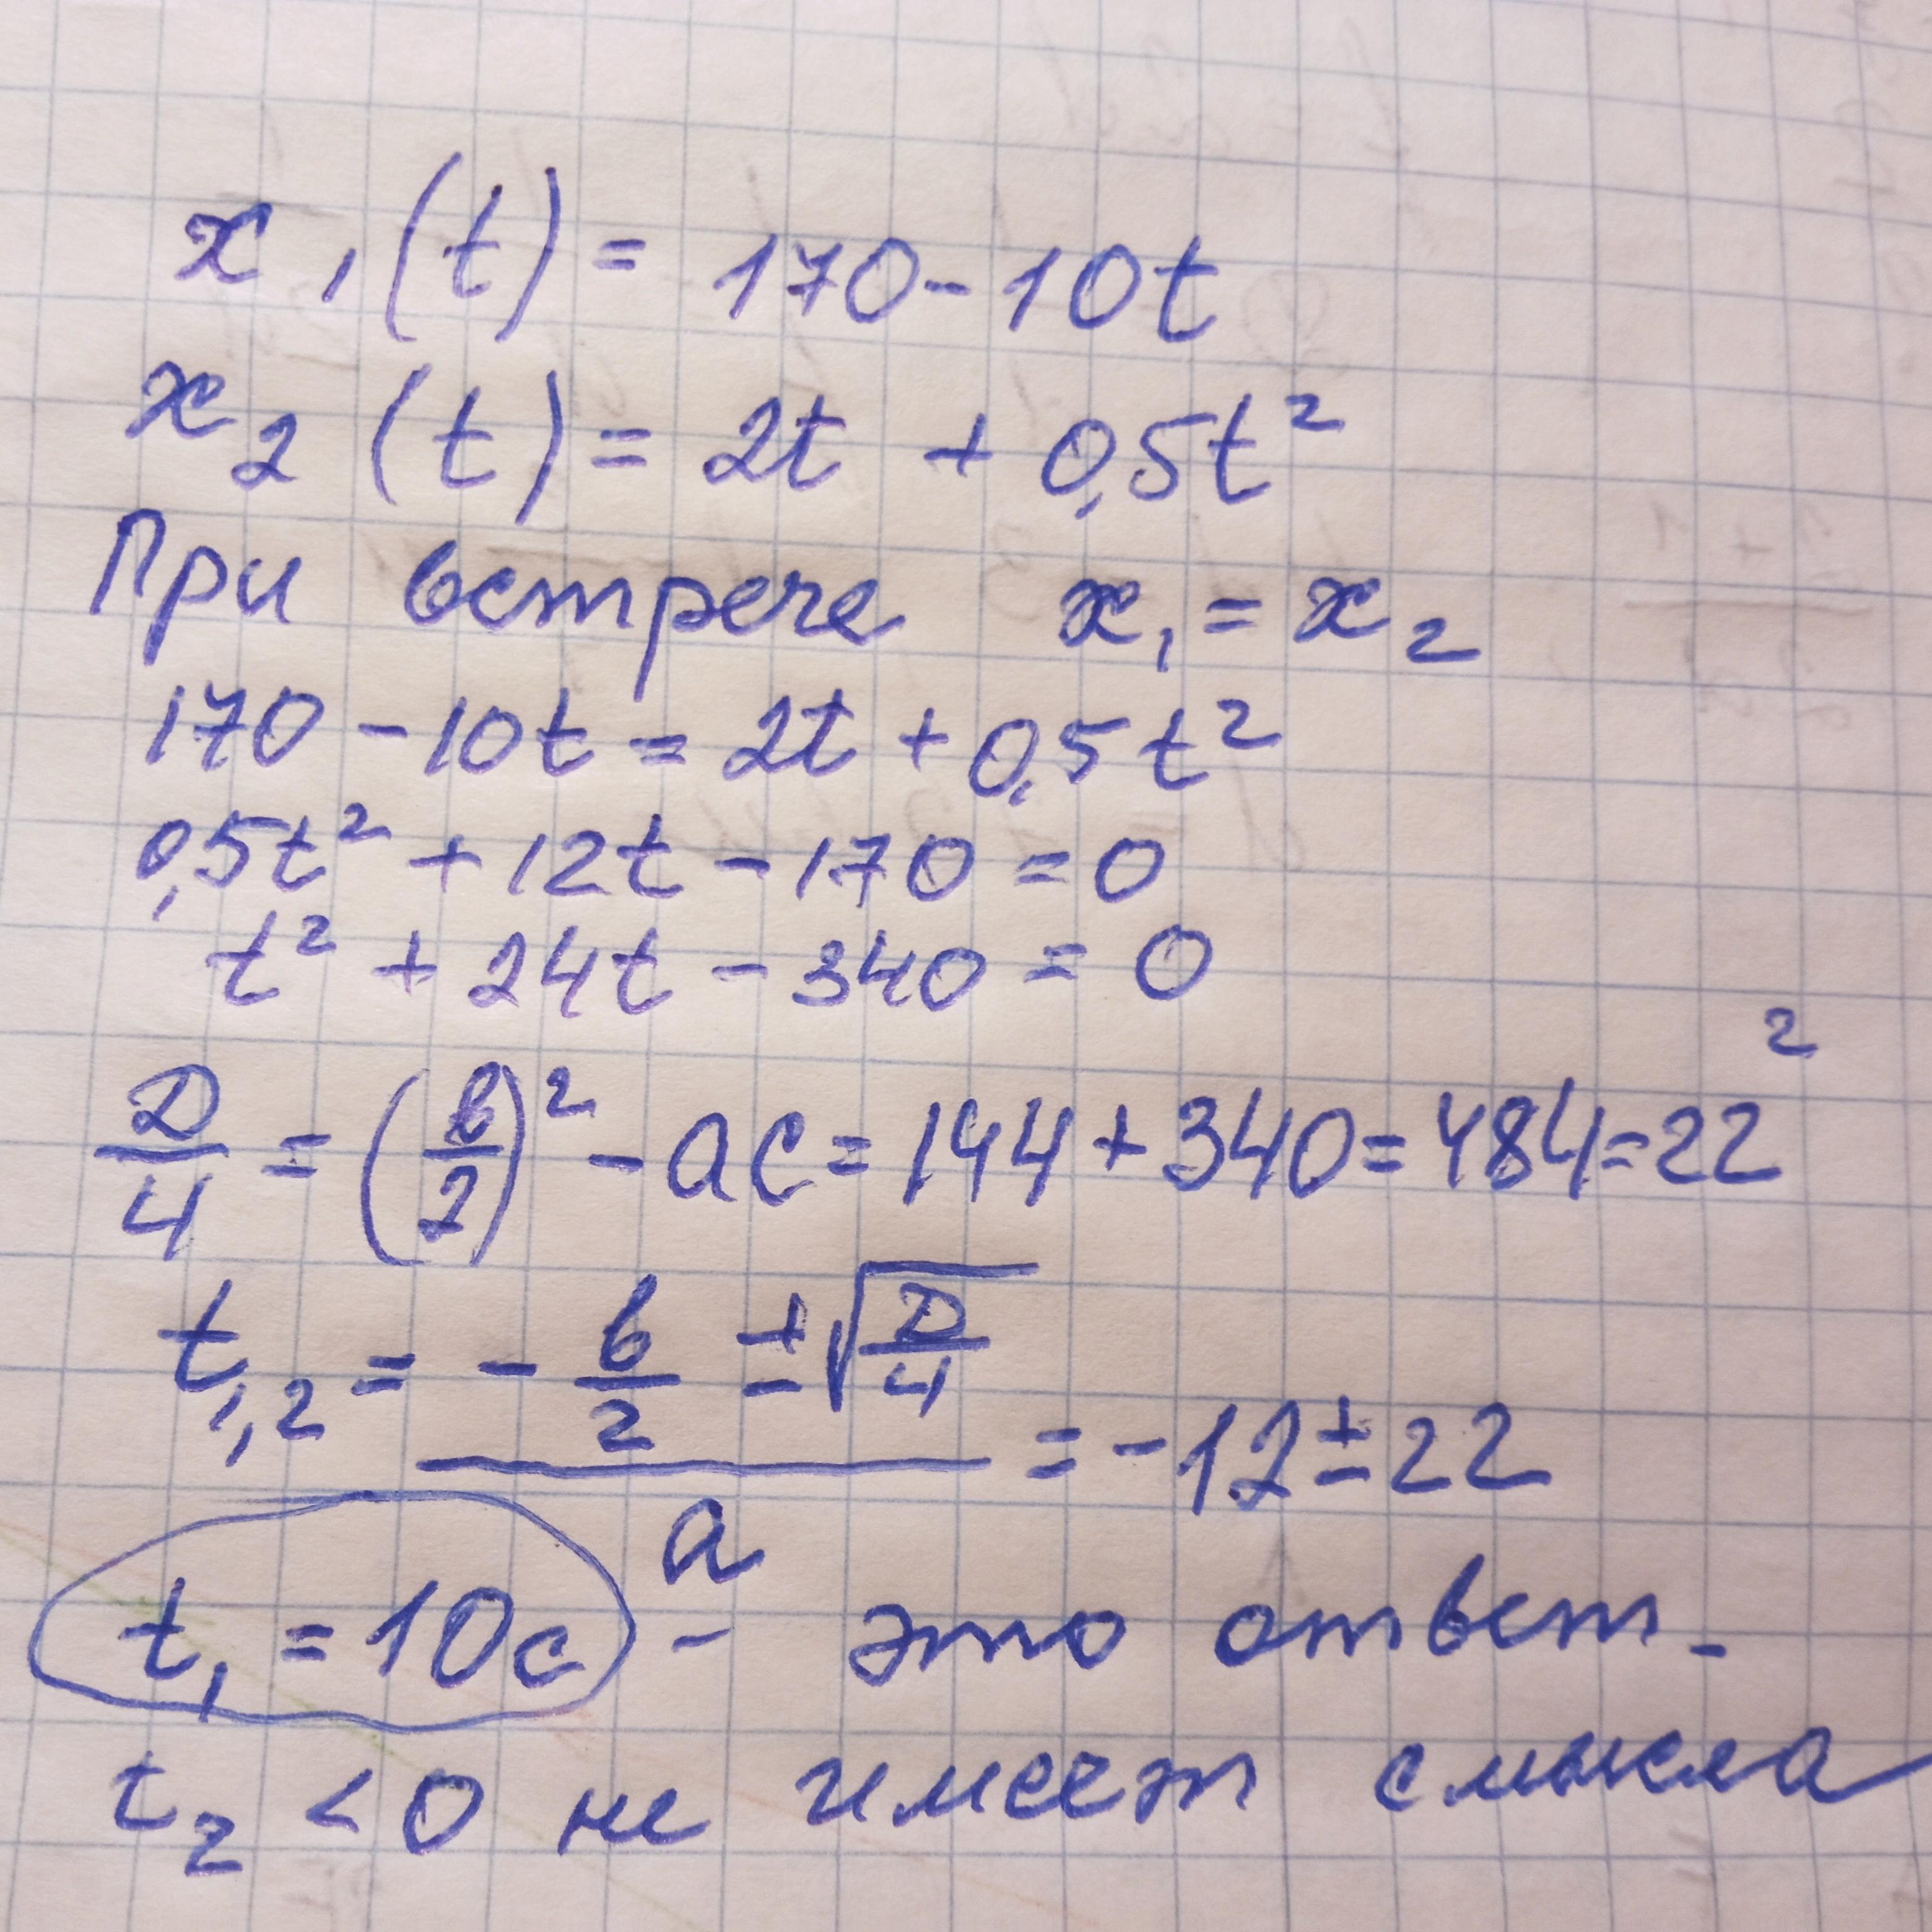 x₁(t) = 170 - 10t
x₂(t) = 2t + 0,5t²
При встрече x₁ = x₂
170 - 10t = 2t + 0,5t²
0,5t² + 12t - 170 = 0
t² + 24t - 340 = 0
D/4 = (b/2)² - ac = 144 + 340 = 484 = 22²
t₁,₂ = (-b/2 ± √(D/4))/a = -12 ± 22
t₁ = 10c - это ответ.
t₂ < 0 не имеет смысла